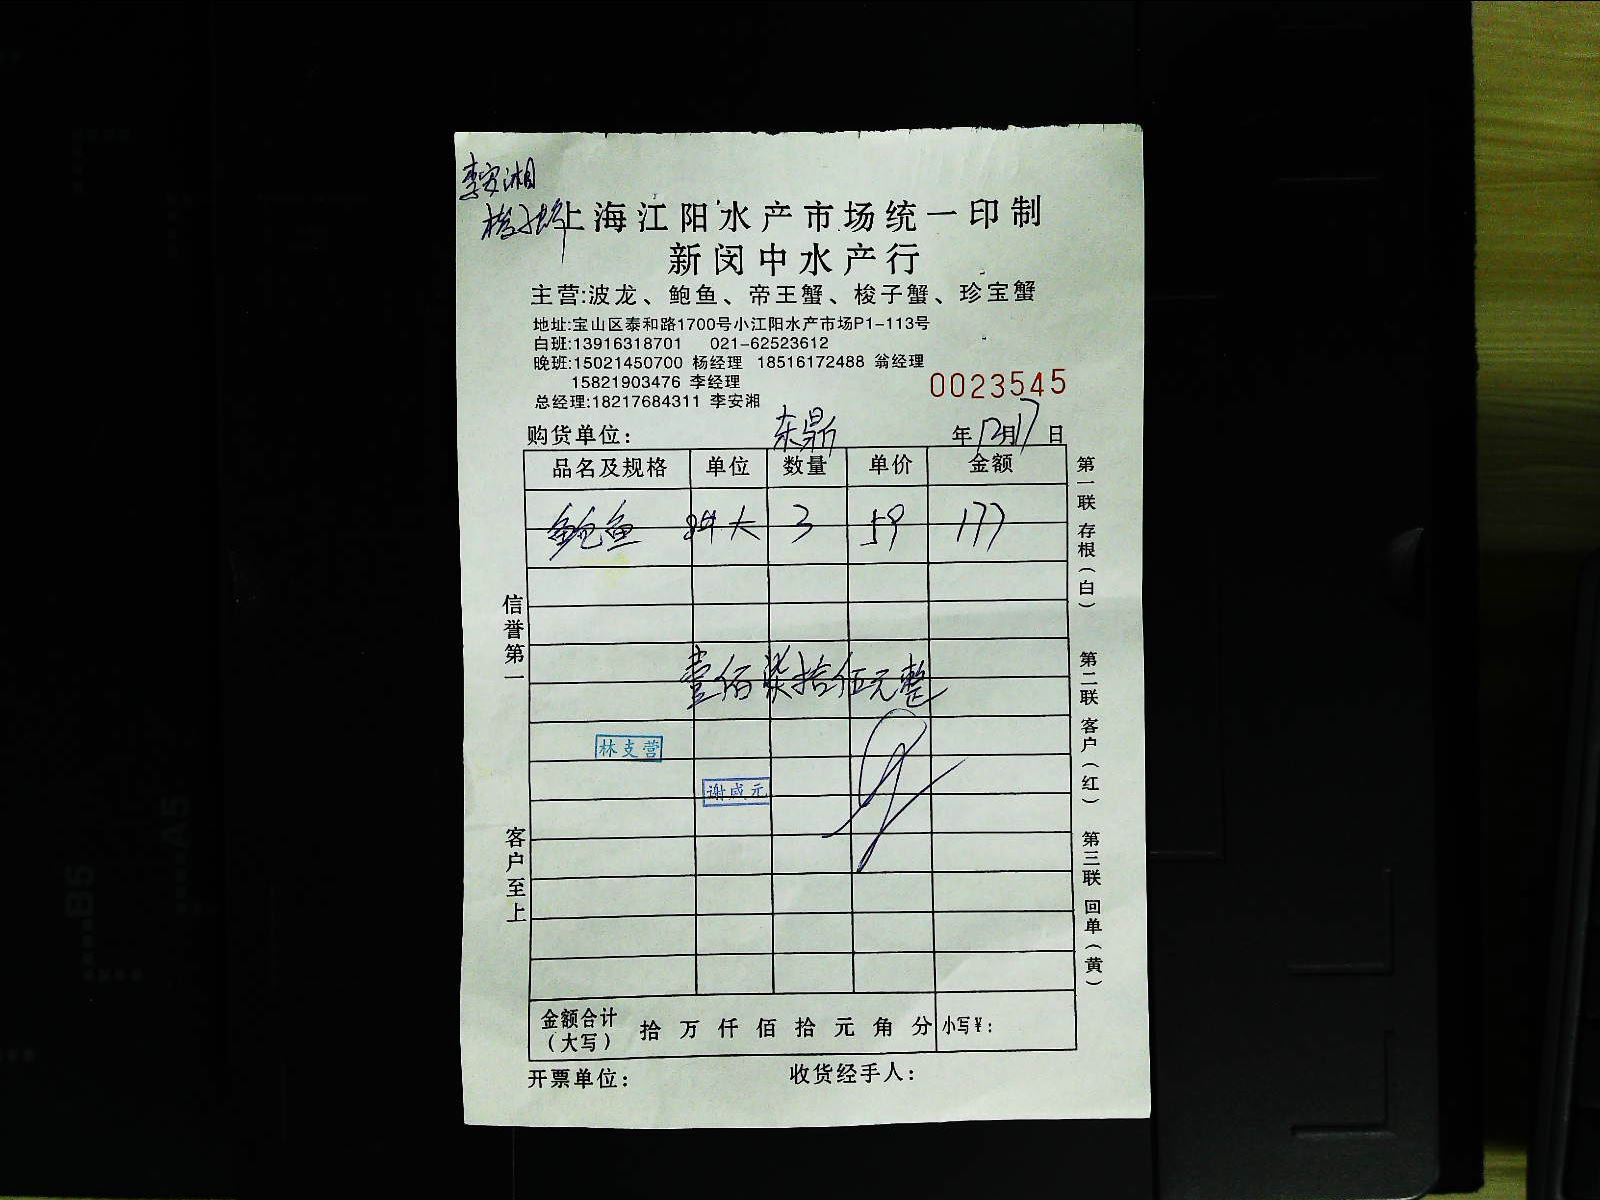 李安湘
上海江阳水产市场统一印制
新闵中水产行
主营:波龙、鲍鱼、帝王蟹、梭子蟹、珍宝蟹
地址:宝山区泰和路1700号小江阳水产市场P1-113号
白班:13916318701 021-62523612
晚班:15021450700 杨经理 18516172488 翁经理
15821903476 李经理
总经理:18217684311 李安湘
0023545
购货单位: 东鼎 年12月17日
品名及规格 单位 数量 单价 金额
鲍鱼 大 3 59 177
壹佰柒拾伍元整
林支营
谢咸元
金额合计(大写) 拾 万 仟 佰 拾 元 角 分 小写¥:
开票单位: 收货经手人:
信誉第一
客户至上
第一联 存根(白)
第二联 客户(红)
第三联 回单(黄)
B5
A5